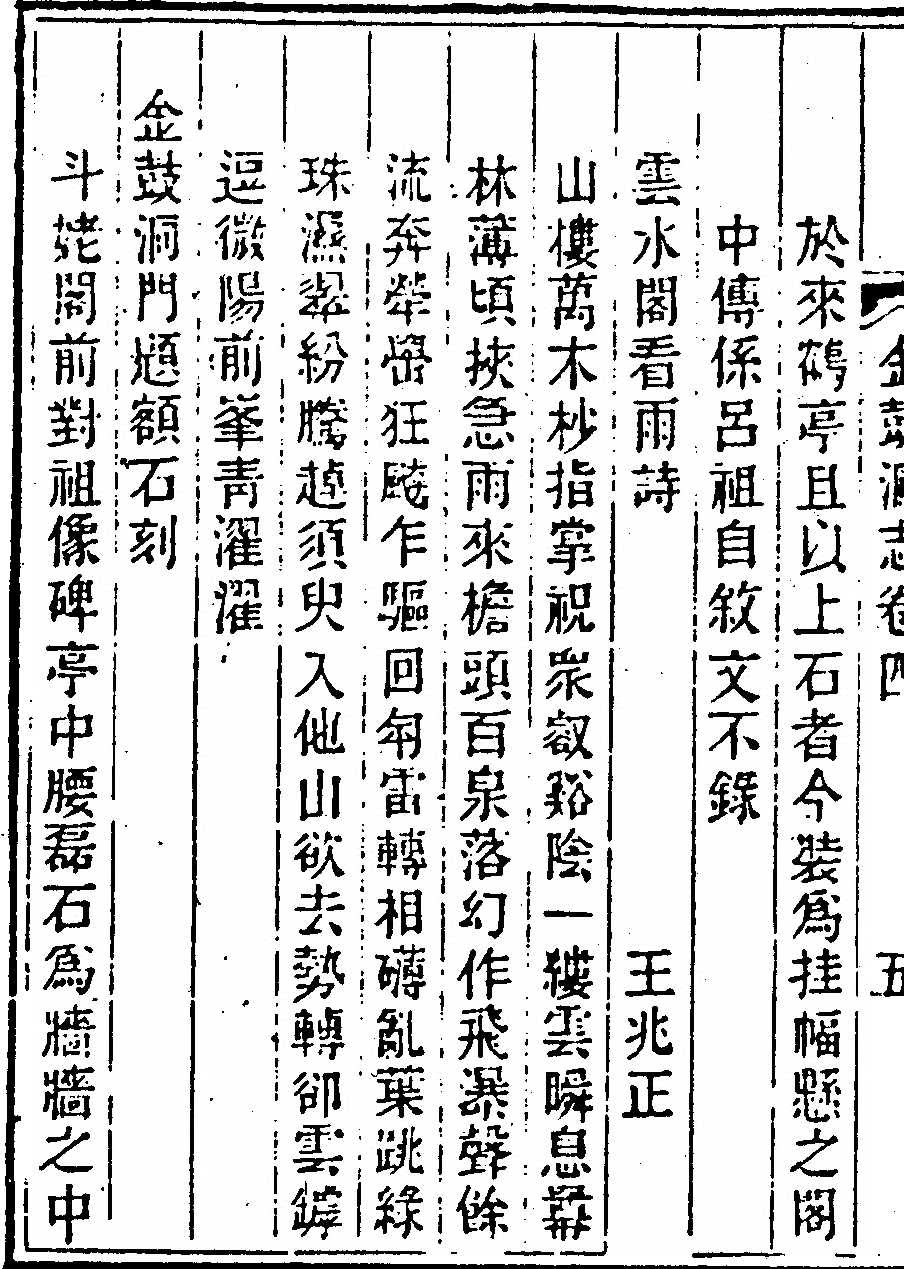 金鼓洞志卷四 五
於來鶴亭且以上石者今裝爲挂幅懸之閣
中傳係呂祖自敘文不錄
雲水閣看雨詩 王兆正
山樓萬木杪指掌視衆叡谿陰一縷雲瞬息冪
林薄頃挾急雨來檐頭百泉落幻作飛瀑聲餘
流奔犖嶨狂颷乍驅回匉雷轉相礴亂葉跳綠
珠濕翠紛騰趠須臾入他山欲去勢轉卻雲罅
逗微陽前峯青濯濯
金鼓洞門題額石刻
斗姥閣前對祖像碑亭中腰磊石爲牆牆之中